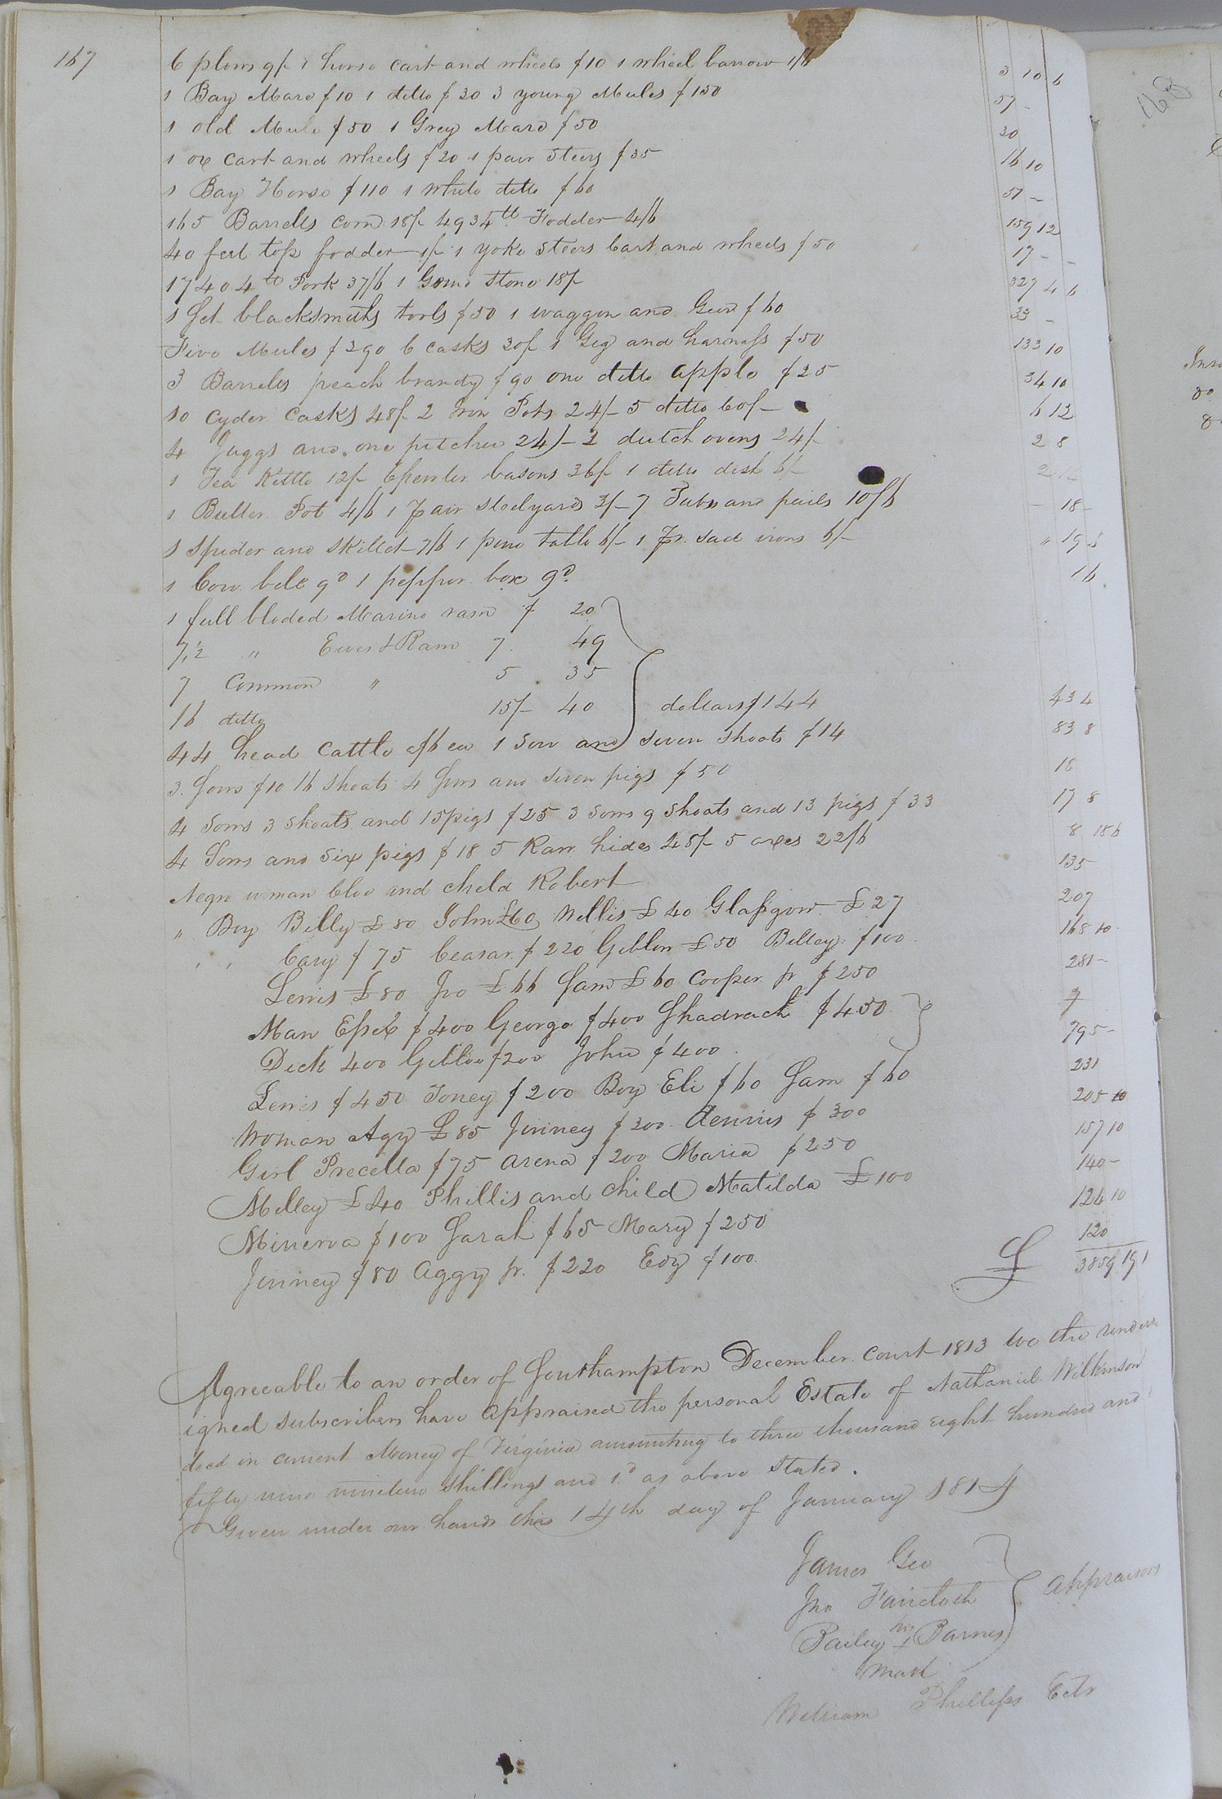 167
6 plows 9/- 1 horse cart and wheels $10 1 wheel barrow 1/6 3 10 6
1 Bay Mare $10 1 ditto $30 3 young Mules $150 57 -
1 old Mule $50 1 Grey Mare $50 30
1 ox cart and wheels $20 1 pair Steers $35 16 10
1 Bay Horse $110 1 white ditto $60 51 -
165 Barrells corn 18/- 4935 lb Fodder 4/6 159 12
40 feet tops fodder 1/- 1 yoke Steers Cart and wheels $50 17 - -
17404 lb Pork 37/6 1 Grind Stone 18/- 327 4 6
1 Set blacksmiths tools $50 1 waggon and Geer $60 33 -
Five Mules $290 6 casks 30/- 1 Gig and harness $50 133 10
3 Barrells peach brandy $90 one ditto apple $25 34 10
10 Cyder Casks 48/- 2 Iron Pots 24/- 5 ditto 60/- 6 12
4 Juggs and one pitcher 24/- 2 dutch ovens 24/- 2 8
1 Tea Kettle 12/- 6 pewter basons 36/- 1 ditto dish 6/- 2
1 Butter Pot 4/6 1 Pair Steelyards 3/- 7 Tubs and pails 10/6 - 18 -
1 Spider and Skillet 7/6 1 pine table 6/- 1 Pr. sad irons 6/- " 19 6
1 Cow bell 9d 1 pepper box 9d 1 6
1 full bloded Marino ram $ 20
7 1/2 " Ewes & Ram 7 49
7 Common " 5 35
16 ditto 15/- 40 dollars $144 43 4
44 head Cattle ea 1 Sow and seven Shoats $14 83 8
3 Sows $10 16 Shoats 4 Sows and seven pigs $50 18
4 Sows 3 Shoats and 15 pigs $25 3 Sows 9 Shoats and 13 pigs $33 17 8
4 Sows and Six pigs $18 5 Raw hides 48/- 5 axes 22/6 8 18 6
Negro woman Cloe and child Robert 135
" Boy Billy £80 John £60 Willis £40 Glasgow £27 207
" " Cary $75 Ceasar $220 Gibbon £50 Billey $100 168 10
Lewis £80 Jno £66 Sam £60 Cooper jr $250 281 -
Man Essex $400 George $400 Shadrach $450
Dick 400 Gibbon $200 John $400 795 -
Lewis $450 Toney $200 Boy Eli $60 Sam $60 231
Woman Agy £85 Jinney $300 Dennis $300 205 10
Girl Precella $75 Arena $200 Maria $250 157 10
Milley £40 Phillis and child Matilda £100 140 -
Minerva $100 Sarah $65 Mary $250 124 10
Jinney $80 Aggy jr. $220 Edy $100 120
£ 3859 19 1
Agreeable to an order of Southampton December Court 1813 we the unders
igned subscribers have appraised the personal Estate of Nathaniel Wilkinson
decd in current Money of Virginia amounting to three thousand eight hundred and
fifty nine nineteen shillings and 1d as above stated.
Given under our hands this 14th day of January 1814
James Geo
Jno Faircloth appraisers
Bailey his 1 Barnes
mark
William Phillips Extr